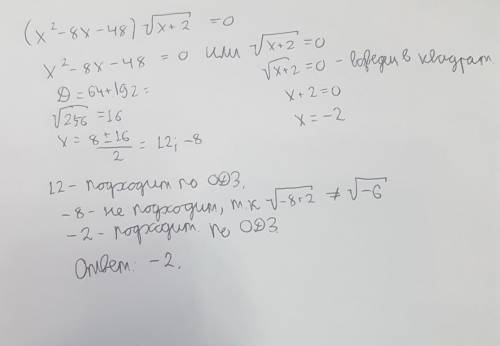 (x²-8x-48)√x+2 =0
x²-8x-48 = 0 или √x+2 =0
D = 64+192 =
√256 =16
x = 8±16/2 = 12; -8
√x+2 =0 - возведи в квадрат
x+2=0
x=-2
12- подходит по ОДЗ,
-8- не подходит, т.к √-8+2 ≠ √-6
-2- подходит по ОДЗ
Ответ: -2.